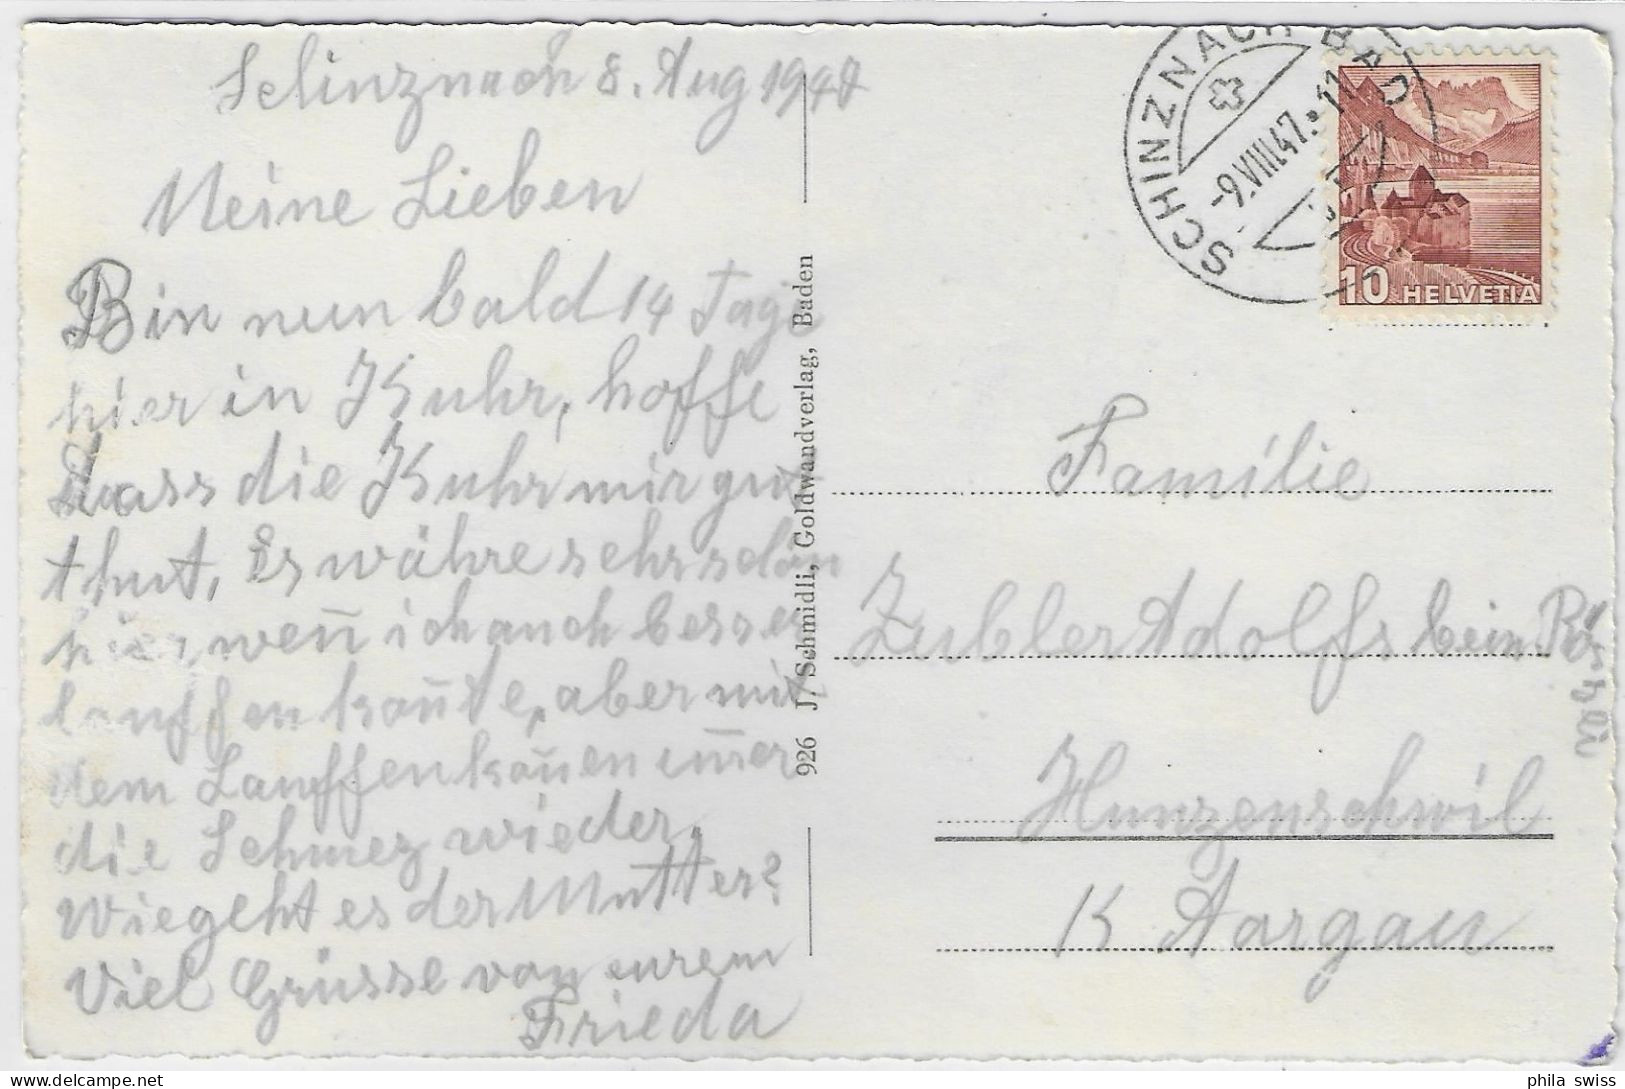 Schinznach 8. Aug 1947
Meine Lieben
Bin nun bald 14 Tage
hier in Kuhr, hoffe
dass die Kuhr mir gut
thut, Es währe sehr schön
hier, weñ ich auch besser
lauffen koñte, aber mit
dem Lauffen koṁen im̃er
die Schmez wieder,
Wie geht es der Mutter?
Viel Grüsse von eurem
Frieda
926 J. Schmidli, Goldwandverlag, Baden
SCHINZNACH BAD
-9.VIII.47.•11
10 HELVETIA
Familie
Zubler Adolfs beim
Hunzenschwil
K Aargau
phila swiss